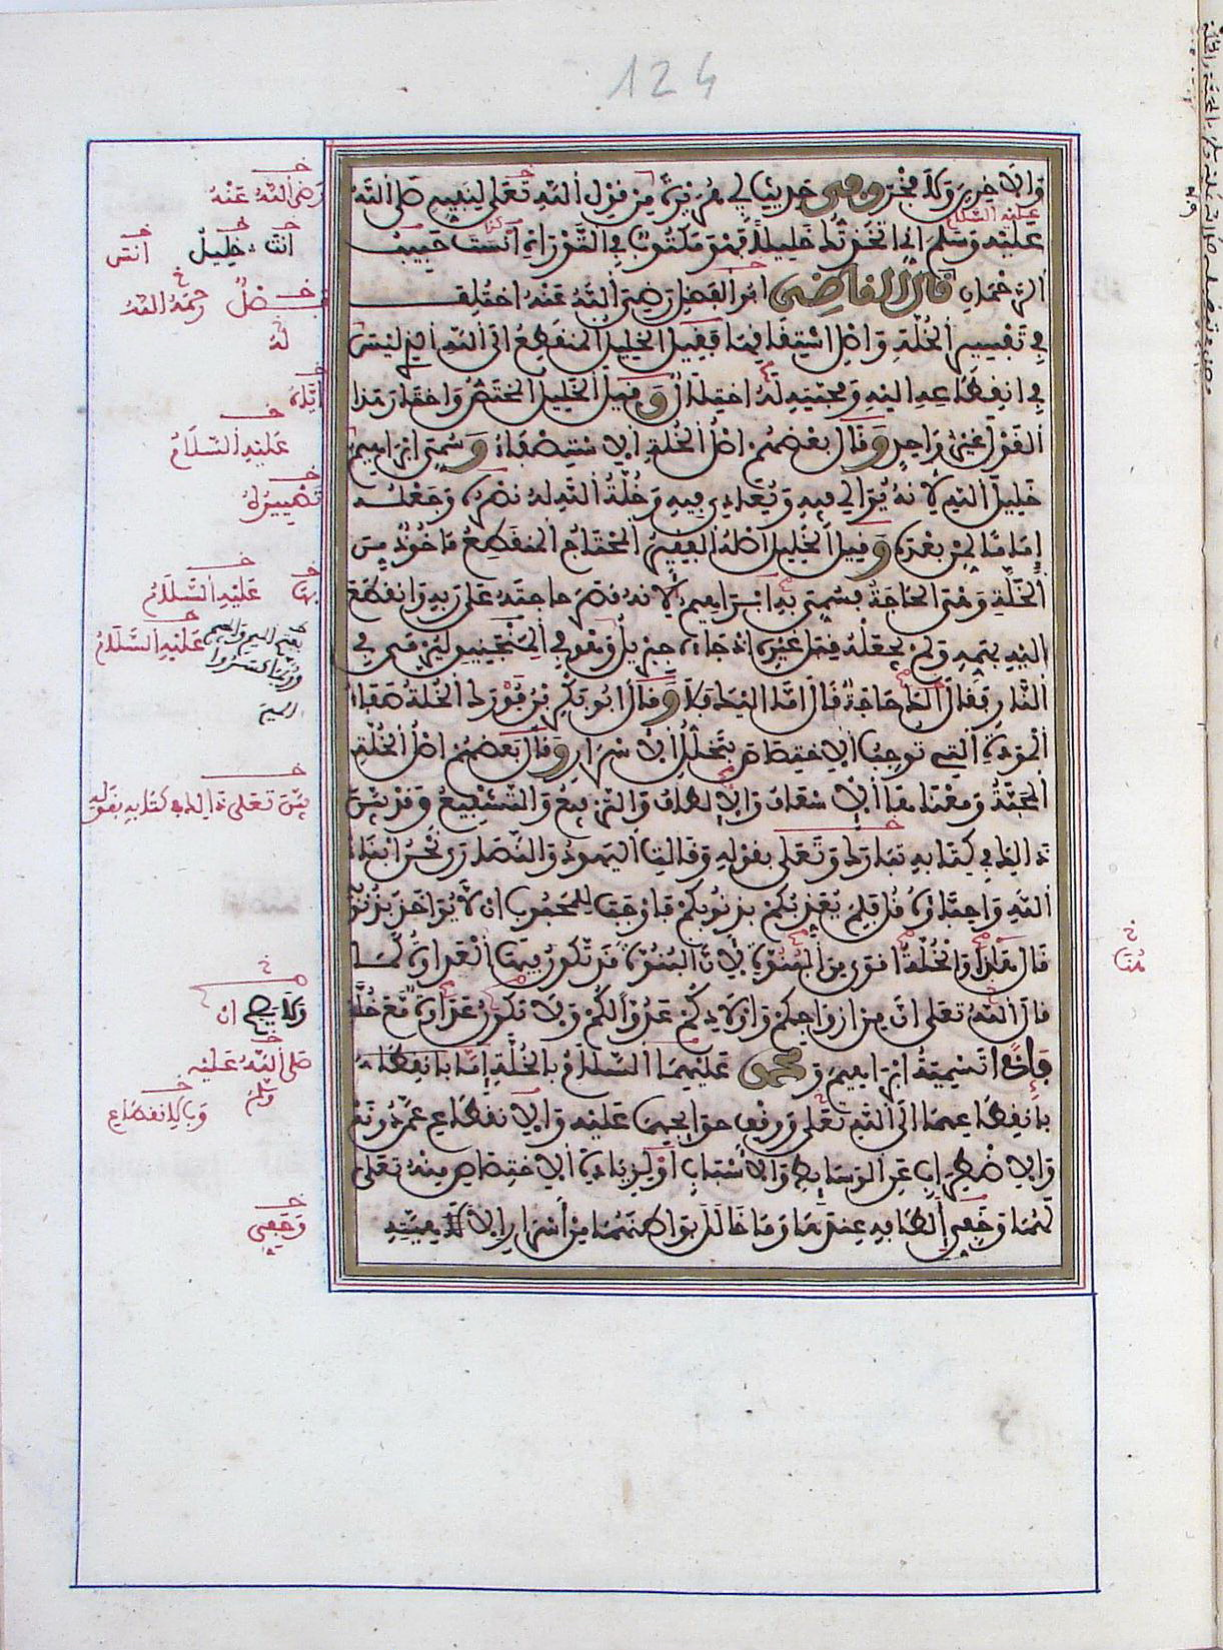 124
والاخرين ولا فخر وفي حديث ابي هريرة من قول الله تعلى لنبيه صلى الله
عليه وسلم اني اتخذتك خليلا فهو مكتوب في التورية انت حبيب
الرحمان قال القاضي ابو الفضل رضي الله عنه اختلف
في تفسير الخلة واصل اشتقاقها فقيل الخليل المنقطع الى الله الذي ليس
في انقطاعه اليه ومحبته له اختلال وقيل الخليل المختص واختار هذا
القول غير واحد وقال بعضهم اصل الخلة الاستصفاء وسمي ابراهيم
خليل الله لانه يوالي فيه ويعادي فيه وخلة الله له نصره وجعله
اماما لمن بعده وقيل الخليل اصله الفقير المحتاج المنقطع ماخوذ من
الخلة وهي الحاجة فسمي به ابراهيم لانه قصر حاجته على ربه وانقطع
اليه بهمه ولم يجعله قبل غيره اذ جاءه جبريل وهو في المنجنيق ليرمى به في
النار فقال الك حاجة قال اما اليك فلا وقال ابو بكر بن فورك الخلة صفاء
المودة التي توجب الاختصاص بتخلل الاسرار وقال بعضهم اصل الخلة
المحبة ومعناها الاسعاف والالطاف والترفيع والتشفيع وقد بين
ذالك في كتابه تبارك وتعلى بقوله وقالت اليهود والنصارى نحن ابناء
الله واحباؤه قل فلم يعذبكم بذنوبكم فاوجب للمحبوب ان لا يؤاخذ بذنوبه
قال هذا والخلة اقوى من البنوة لان البنوة قد تكون فيها العداوة كما
قال الله تعلى ان من ازواجكم واولادكم عدوا لكم ولا تكون عداوة مع خلة
فاذا تسمية ابراهيم ومحمد عليهما السلام بالخلة اما بانقطا
بانقطاعهما الى الله تعلى ووقف حوائجهما عليه والانقطاع عمن دونه
والاضراب عن الوسائط والاسباب او لزيادة الاختصاص منه تعلى
لهما وخفي الطافه عندهما وما خالل بواطنهما من اسرار الاهيته
رضي الله عنه
انت خليل انت
فضل رحمه الله
له
عليه السلام
تصييره
بها عليه السلام
عليه السلام
بين تعلى ذالك في كتابه بقوله
هنا
ولا يصح ان
صلى الله عليه وسلم
وبالانقطاع
وخفي